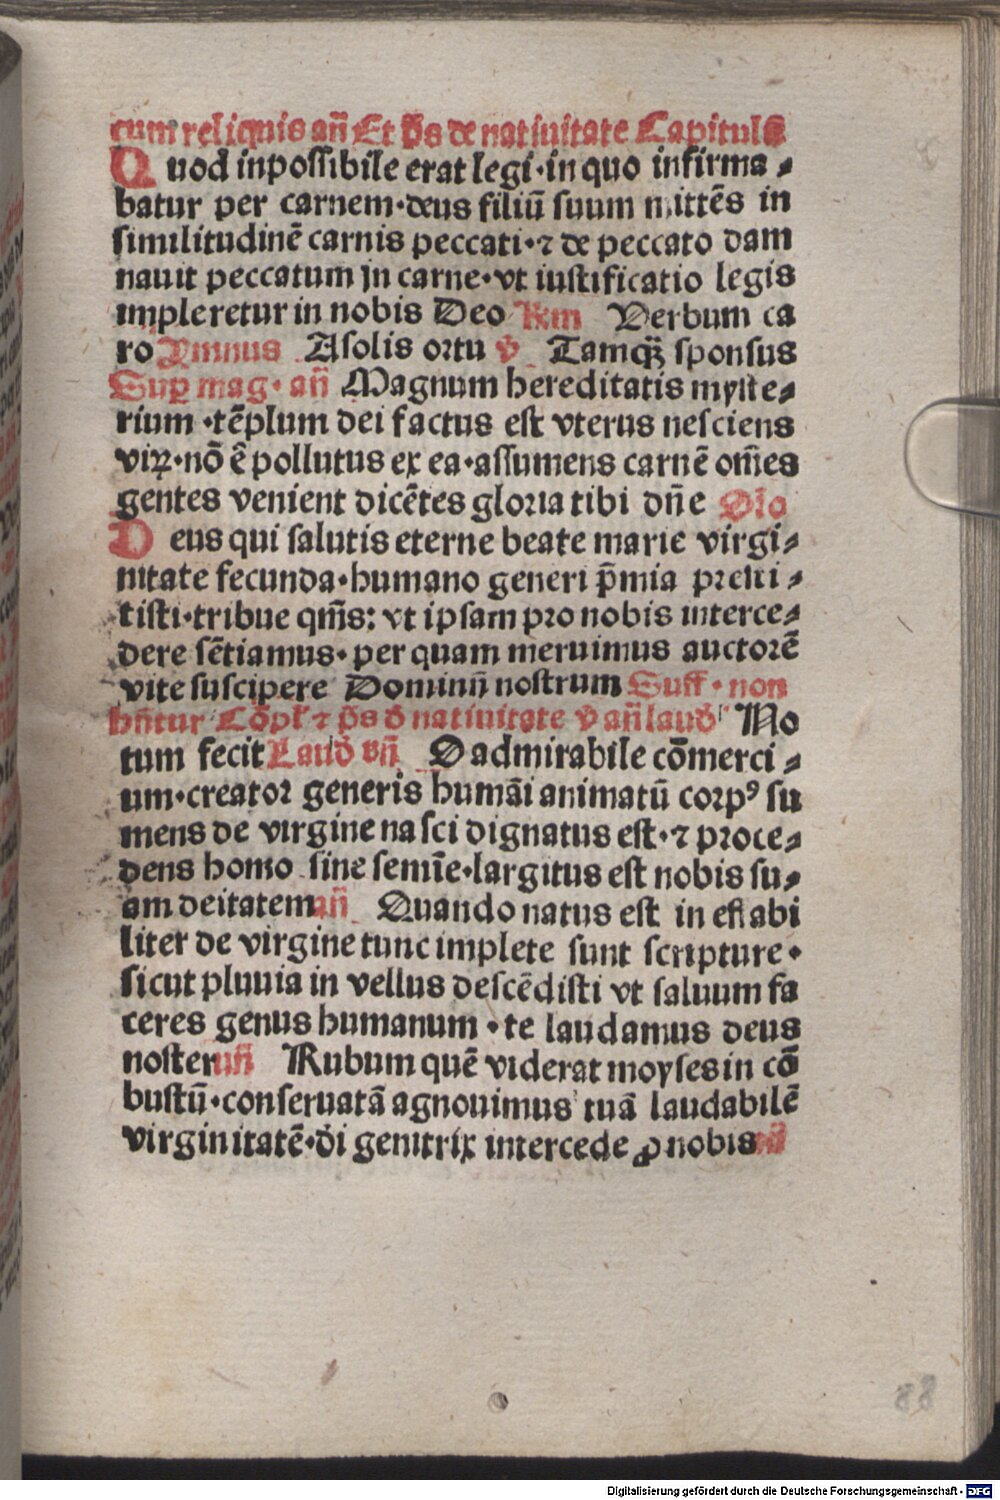 cum reliquis an̄ Et p̄s de natiuitate Capitulū
Quod inpoſſibile erat legi·in quo infirma⸗
batur per carnem·deus filiū ſuum mittēs in
ſimilitudinē carnis peccati·⁊ de peccato dam
nauit peccatum in carne·vt iuſtificatio legis
impleretur in nobis Deo Rm Verbum ca
ro Ymnus A ſolis ortu v̄ Tamqꝫ ſponſus
Sup mag· an̄ Magnum hereditatis myſte⸗
rium ·tēplum dei factus eſt vterus neſciens
viꝝ·nō ē pollutus ex ea·aſſumens carnē om̄es
gentes venient dicētes gloria tibi dn̄e Oīo
Deus qui ſalutis eterne beate marie virgi⸗
nitate fecunda·humano generi p̄mia preſti⸗
tiſti·tribue qm̄s: vt ipſam pro nobis interce⸗
dere ſētiamus·per quam meruimus auctorē
vite ſuſcipere Dominū noſtrum Suff·non
hn̄tur Cōpł ⁊ p̄s đ natiuitate v̄ an̄ laud' No
tum fecit Laud vn̄ O admirabile cōmerci⸗
um·creator generis humāi animatū corpꝰ ſu
mens de virgine naſci dignatus eſt·⁊ proce⸗
dens homo ſine ſemīe·largitus eſt nobis ſu⸗
am deitatem an̄ Quando natus eſt in effabi
liter de virgine tunc implete ſunt ſcripture·
ſicut pluuia in vellus deſcēdiſti vt ſaluum fa
ceres genus humanum·te laudamus deus
noſter an̄ Rubum quē viderat moyſes in cō
buſtū·conſeruatā agnouimus tuā laudabilē
virginitatē·di genitrix intercede ꝓ nobis an̄
88
Digitalisierung gefördert durch die Deutsche Forschungsgemeinschaft - DFG